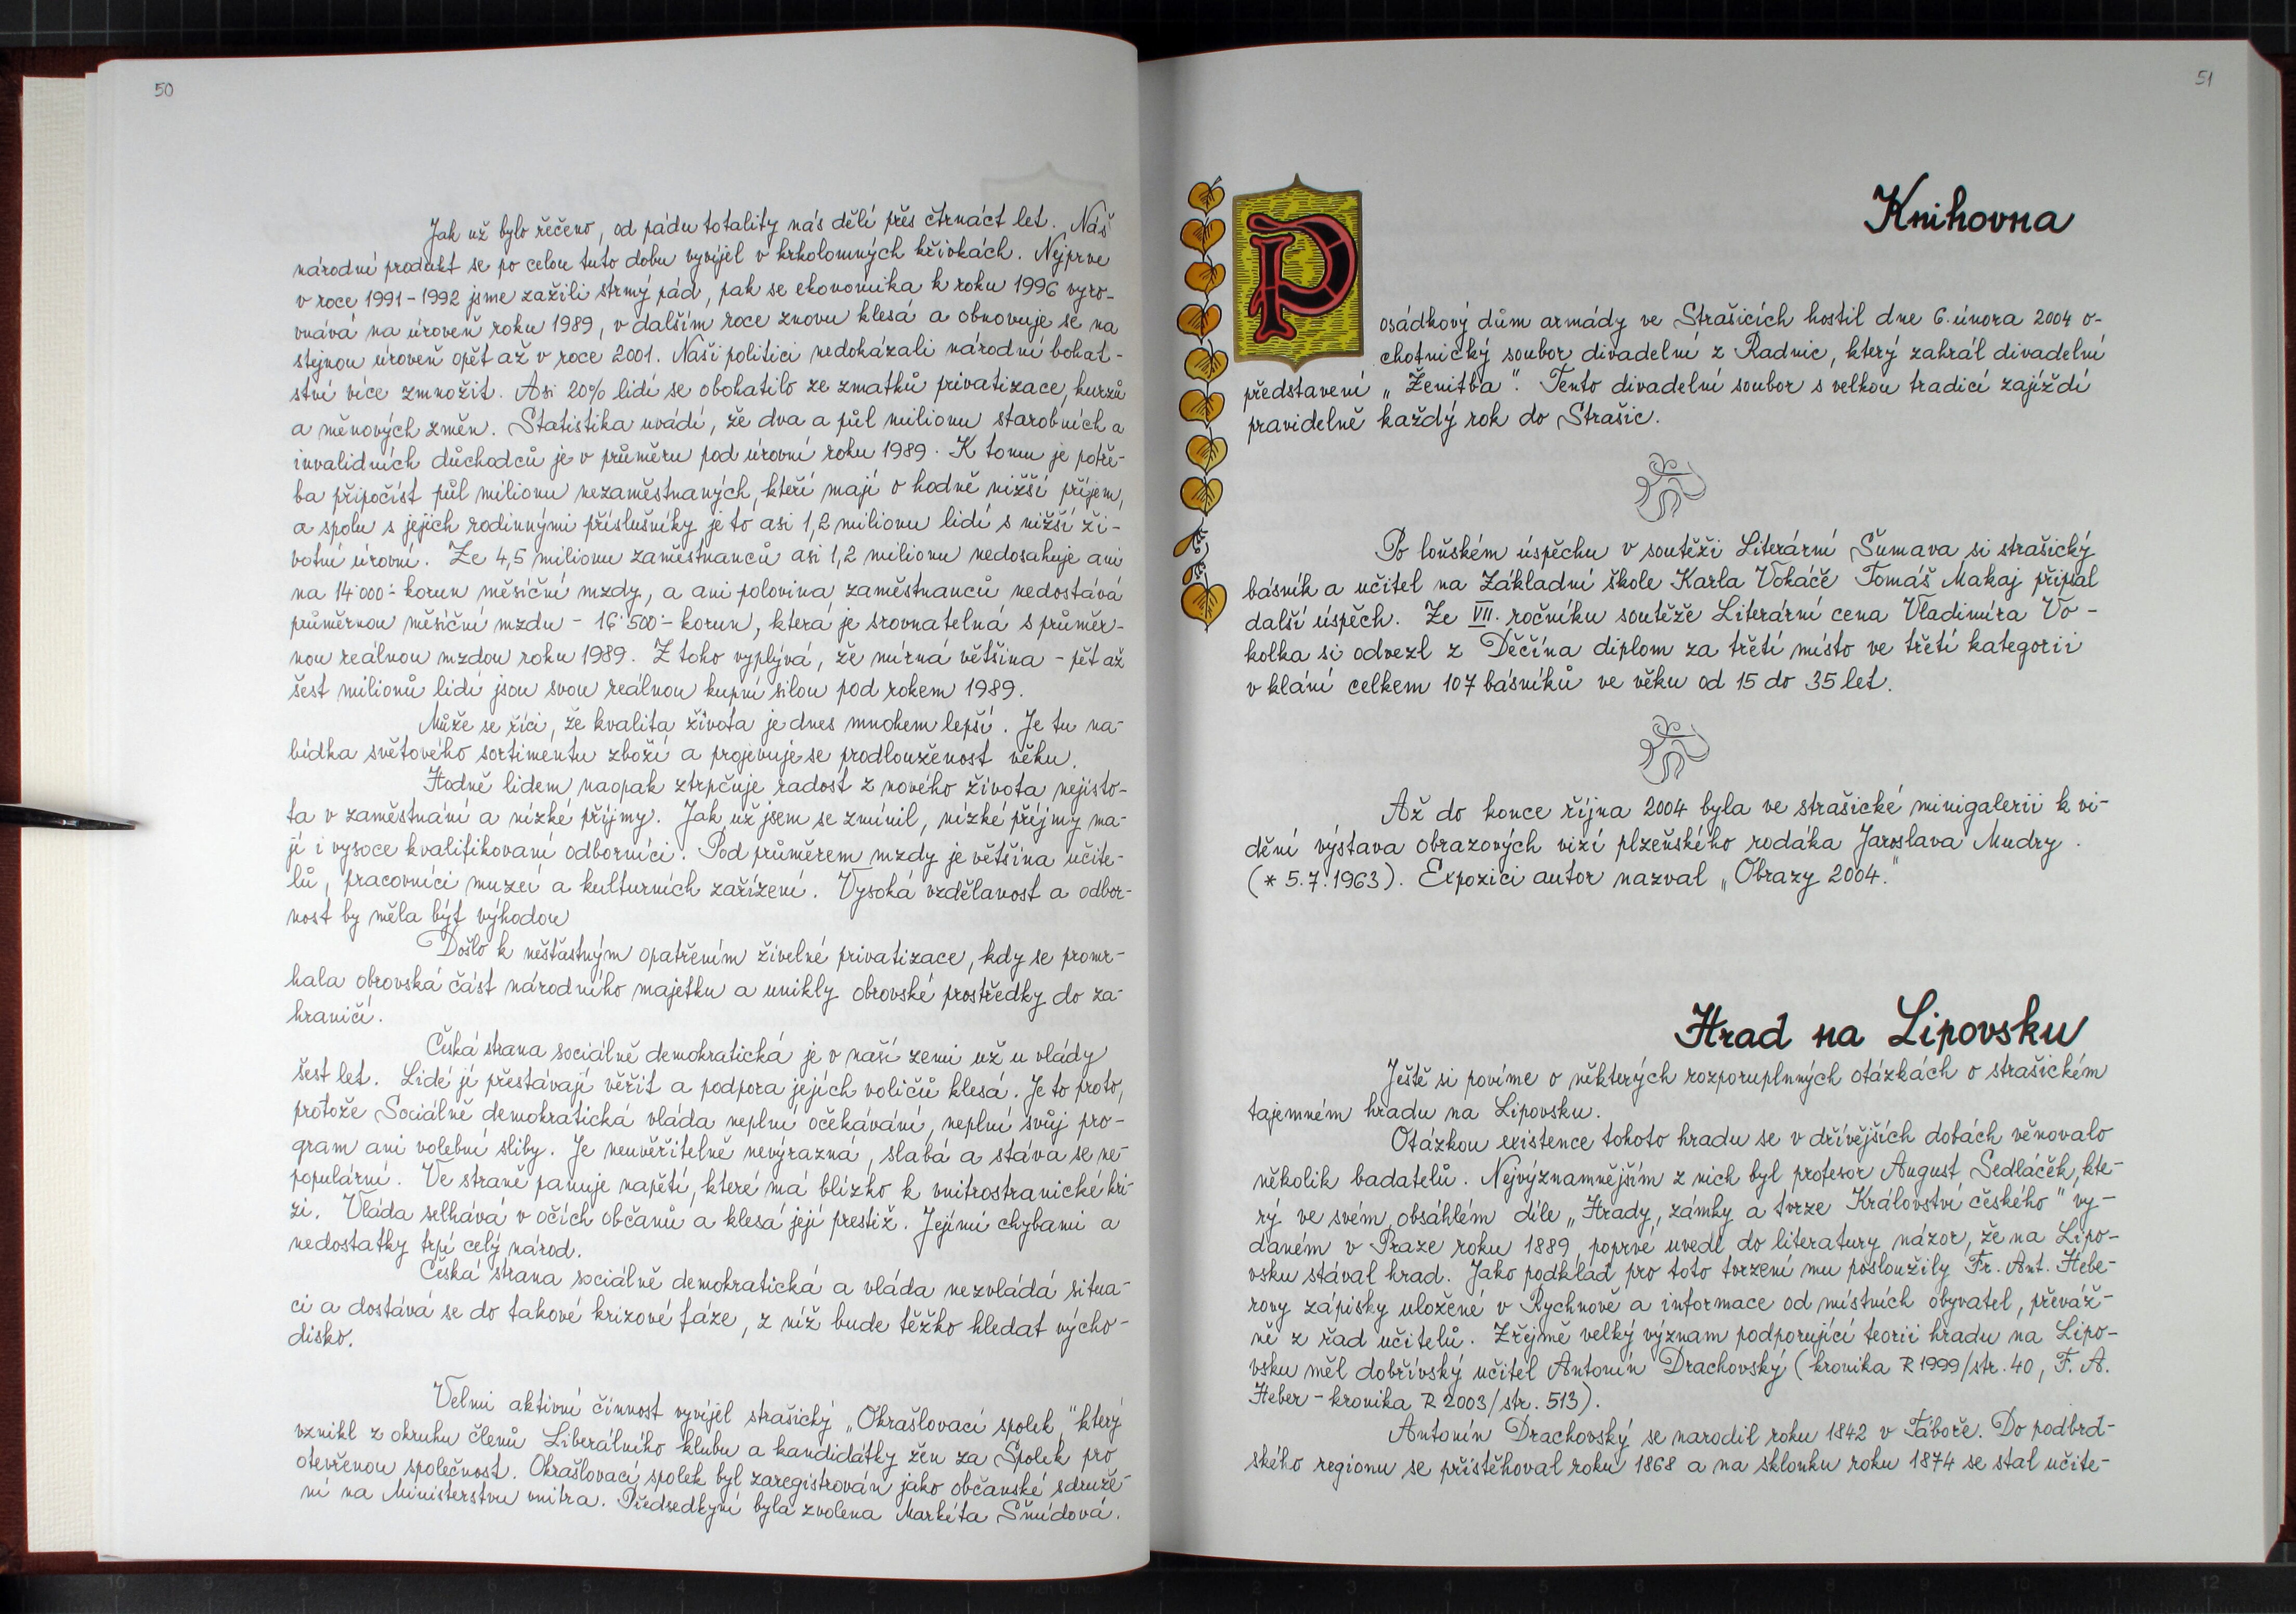 50
Jak už bylo řečeno, od pádu totality nás dělí přes čtrnáct let. Náš
národní produkt se po celou tuto dobu vyvíjel v krkolomných křivkách. Nejprve
v roce 1991-1992 jsme zažili strmý pád, pak se ekonomika k roku 1996 vyro-
vnává na úroveň roku 1989, v dalším roce znovu klesá a obnovuje se na
stejnou úroveň opět až v roce 2001. Naši politici nedokázali národní bohat-
ství více zmnožit. Asi 20% lidí se obohatilo ze zmatků privatizace, kurzů
a měnových změn. Statistika uvádí, že dva a půl milionu starobních a
invalidních důchodců je v průměru pod úrovní roku 1989. K tomu je potře-
ba připočíst půl milionu nezaměstnaných, kteří mají o hodně nižší příjem,
a spolu s jejich rodinnými příslušníky je to asi 1,2 milionu lidí s nižší ži-
votní úrovní. Ze 4,5 milionu zaměstnanců asi 1,2 milionu nedosahuje ani
na 14˙000,- korun měsíční mzdy, a ani polovina zaměstnanců nedostává
průměrnou měsíční mzdu - 16˙500,- korun, která je srovnatelná s průměr-
nou reálnou mzdou roku 1989. Z toho vyplývá, že mírná většina - pět až
šest milionů lidí jsou svou reálnou kupní silou pod rokem 1989.
Může se říci, že kvalita života je dnes mnohem lepší. Je tu na-
bídka světového sortimentu zboží a projevuje se prodlouženost věku.
Hodně lidem naopak ztrpčuje radost z nového života nejisto-
ta v zaměstnání a nízké příjmy. Jak už jsem se zmínil, nízké příjmy ma-
jí i vysoce kvalifikovaní odborníci. Pod průměrem mzdy je většina učite-
lů, pracovníci muzeí a kulturních zařízení. Vysoká vzdělanost a odbor-
nost by měla být výhodou
Došlo k nešťastným opatřením živelné privatizace, kdy se promr-
hala obrovská část národního majetku a unikly obrovské prostředky do za-
hraničí.
Česká strana sociálně demokratická je v naší zemi už u vlády
šest let. Lidé jí přestávají věřit a podpora jejích voličů klesá. Je to proto,
protože Sociálně demokratická vláda neplní očekávání, neplní svůj pro-
gram ani volební sliby. Je neuvěřitelně nevýrazná, slabá a stává se ne-
populární. Ve straně panuje napětí, které má blízko k vnitrostranické kri-
zi. Vláda selhává v očích občanů a klesá její prestiž. Jejími chybami a
nedostatky trpí celý národ.
Česká strana sociálně demokratická a vláda nezvládá situa-
ci a dostává se do takové krizové fáze, z níž bude těžko hledat výcho-
disko.
Velmi aktivní činnost vyvíjel strašický „Okrašlovací spolek," který
vznikl z okruhu členů Liberálního klubu a kandidátky žen za Spolek pro
otevřenou společnost. Okrašlovací spolek byl zaregistrován jako občanské sdruže-
ní na Ministerstvu vnitra. Předsedkyní byla zvolena Markéta Šmídová.
51
Knihovna
Posádkový dům armády ve Strašicích hostil dne 6. února 2004 o-
chotnický soubor divadelní z Radnic, který zahrál divadelní
představení „Ženitba". Tento divadelní soubor s velkou tradicí zajíždí
pravidelně každý rok do Strašic.
Po loňském úspěchu v soutěži Literární Šumava si strašický
básník a učitel na Základní škole Karla Vokáče Tomáš Makaj připsal
další úspěch. Ze VII. ročníku soutěže Literární cena Vladimíra Vo-
kolka si odvezl z Děčína diplom za třetí místo ve třetí kategorii
v klání celkem 107 básníků ve věku od 15 do 35 let.
Až do konce října 2004 byla ve strašické minigalerii k vi-
dění výstava obrazových vizí plzeňského rodáka Jaroslava Mudry.
(* 5.7.1963). Expozici autor nazval „Obrazy 2004."
Hrad na Lipovsku
Ještě si povíme o některých rozporuplných otázkách o strašickém
tajemném hradu na Lipovsku.
Otázkou existence tohoto hradu se v dřívějších dobách věnovalo
několik badatelů. Nejvýznamnějším z nich byl profesor August Sedláček, kte-
rý ve svém obsáhlém díle „Hrady, zámky a tvrze Království českého" vy-
daném v Praze roku 1889, poprvé uvedl do literatury názor, že na Lipo-
vsku stával hrad. Jako podklad pro toto tvrzení mu posloužily Fr. Ant. Hebe-
rovy zápisky uložené v Rychnově a informace od místních obyvatel, převáž-
ně z řad učitelů. Zřejmě velký význam podporující teorii hradu na Lipo-
vsku měl dobřívský učitel Antonín Drachovský (kronika R 1999/str. 40, F. A.
Heber - kronika R 2003/str. 513).
Antonín Drachovský se narodil roku 1842 v Táboře. Do podbrd-
ského regionu se přistěhoval roku 1868 a na sklonku roku 1874 se stal učite-